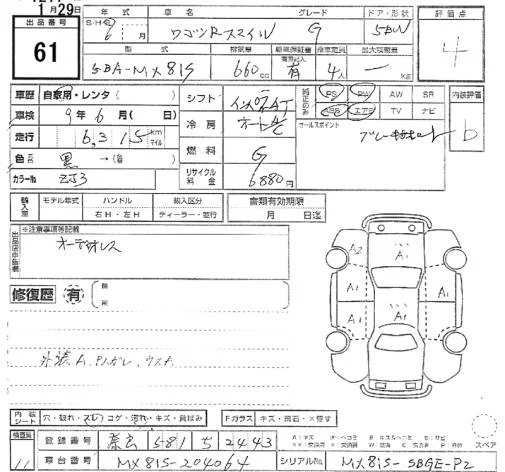 1月29日
出品番号
61
年式 車名 グレード ドア・形状
S・H 6 月 ワゴンRスマイル G 5BW
型式 排気量 新車保証書 乗車定員 最大積載量
5BA-MX81S 660cc 有 4人 - KG
評価点
4
車歴 自家用・レンタ( )
車検 9年6月( 日)
走行 6,315 km マイル
色 黒 →(色 )
カラーNo ZJ3
シフト インパネAT
冷房 オートAC
燃料 G
リサイクル料金 6880円
純正のみ PS PW AW SR
ABS エアB TV ナビ
セールスポイント
ブレーキサポート
内装評価
b
輸入車 モデル年式 ハンドル 輸入区分
右H・左H ディーラー・並行
書類有効期限
月 日迄
※注意事項等記載
オーディオレス
修復歴 有
外装A、Pハガレ、ウスキ
A2 A1 A1 A1 A1 A1
内装シート 穴・破れ・スレ・コゲ・汚れ・キズ・員ばみ
Fガラス キズ・飛石・X要す
スペア
検査員 11
登録番号 奈良 581 ち 2443
車台番号 MX81S-204064
シリアルNo. MX81S-SBGE-P2